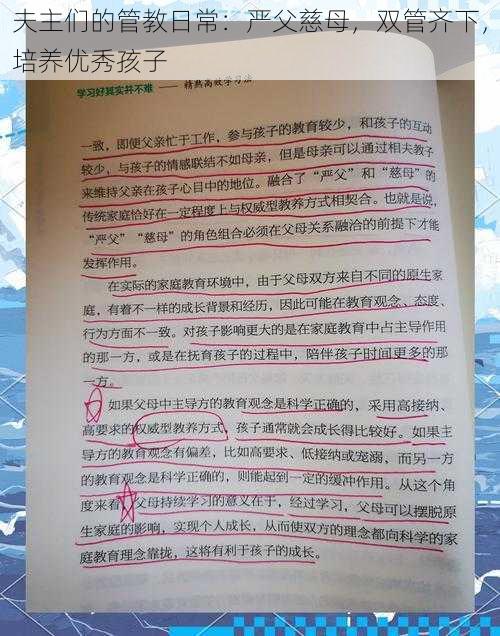 夫主们的管教日常：严父慈母，双管齐下，
培养优秀孩子
学习好其实并不难 —— 精熟高效学习法
一致，即使父亲忙于工作，参与孩子的教育较少，和孩子的互动
较少，与孩子的情感联结不如母亲，但是母亲可以通过相夫教子
来维持父亲在孩子心目中的地位。融合了“严父”和“慈母”的
传统家庭恰好在一定程度上与权威型教养方式相契合。也就是说，
“严父”“慈母”的角色组合必须在父母关系融洽的前提下才能
发挥作用。
在实际的家庭教育环境中，由于父母双方来自不同的原生家
庭，有着不一样的成长背景和经历，因此可能在教育观念、态度、
行为方面不一致。对孩子影响更大的是在家庭教育中占主导作用
的那一方，或是在抚育孩子的过程中，陪伴孩子时间更多的那
一方。
如果父母中主导方的教育观念是科学正确的，采用高接纳、
高要求的权威型教养方式，孩子通常就会成长得比较好。如果主
导方的教育观念有偏差，比如高要求、低接纳或宠溺，而另一方
的教育观念是科学正确的，则能起到一定的缓冲作用。从这个角
度来看，父母持续学习的意义在于，经过学习，父母可以摆脱原
生家庭的影响，实现个人成长，从而使双方的理念都向科学的家
庭教育理念靠拢，这将有利于孩子的成长。